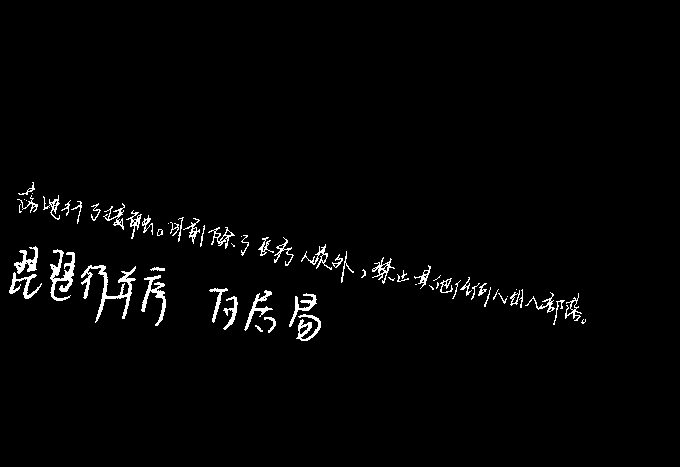 落进行了接触。目前除了医疗人员外，禁止其他任何人进入部落。
琵琶行并序 白居易